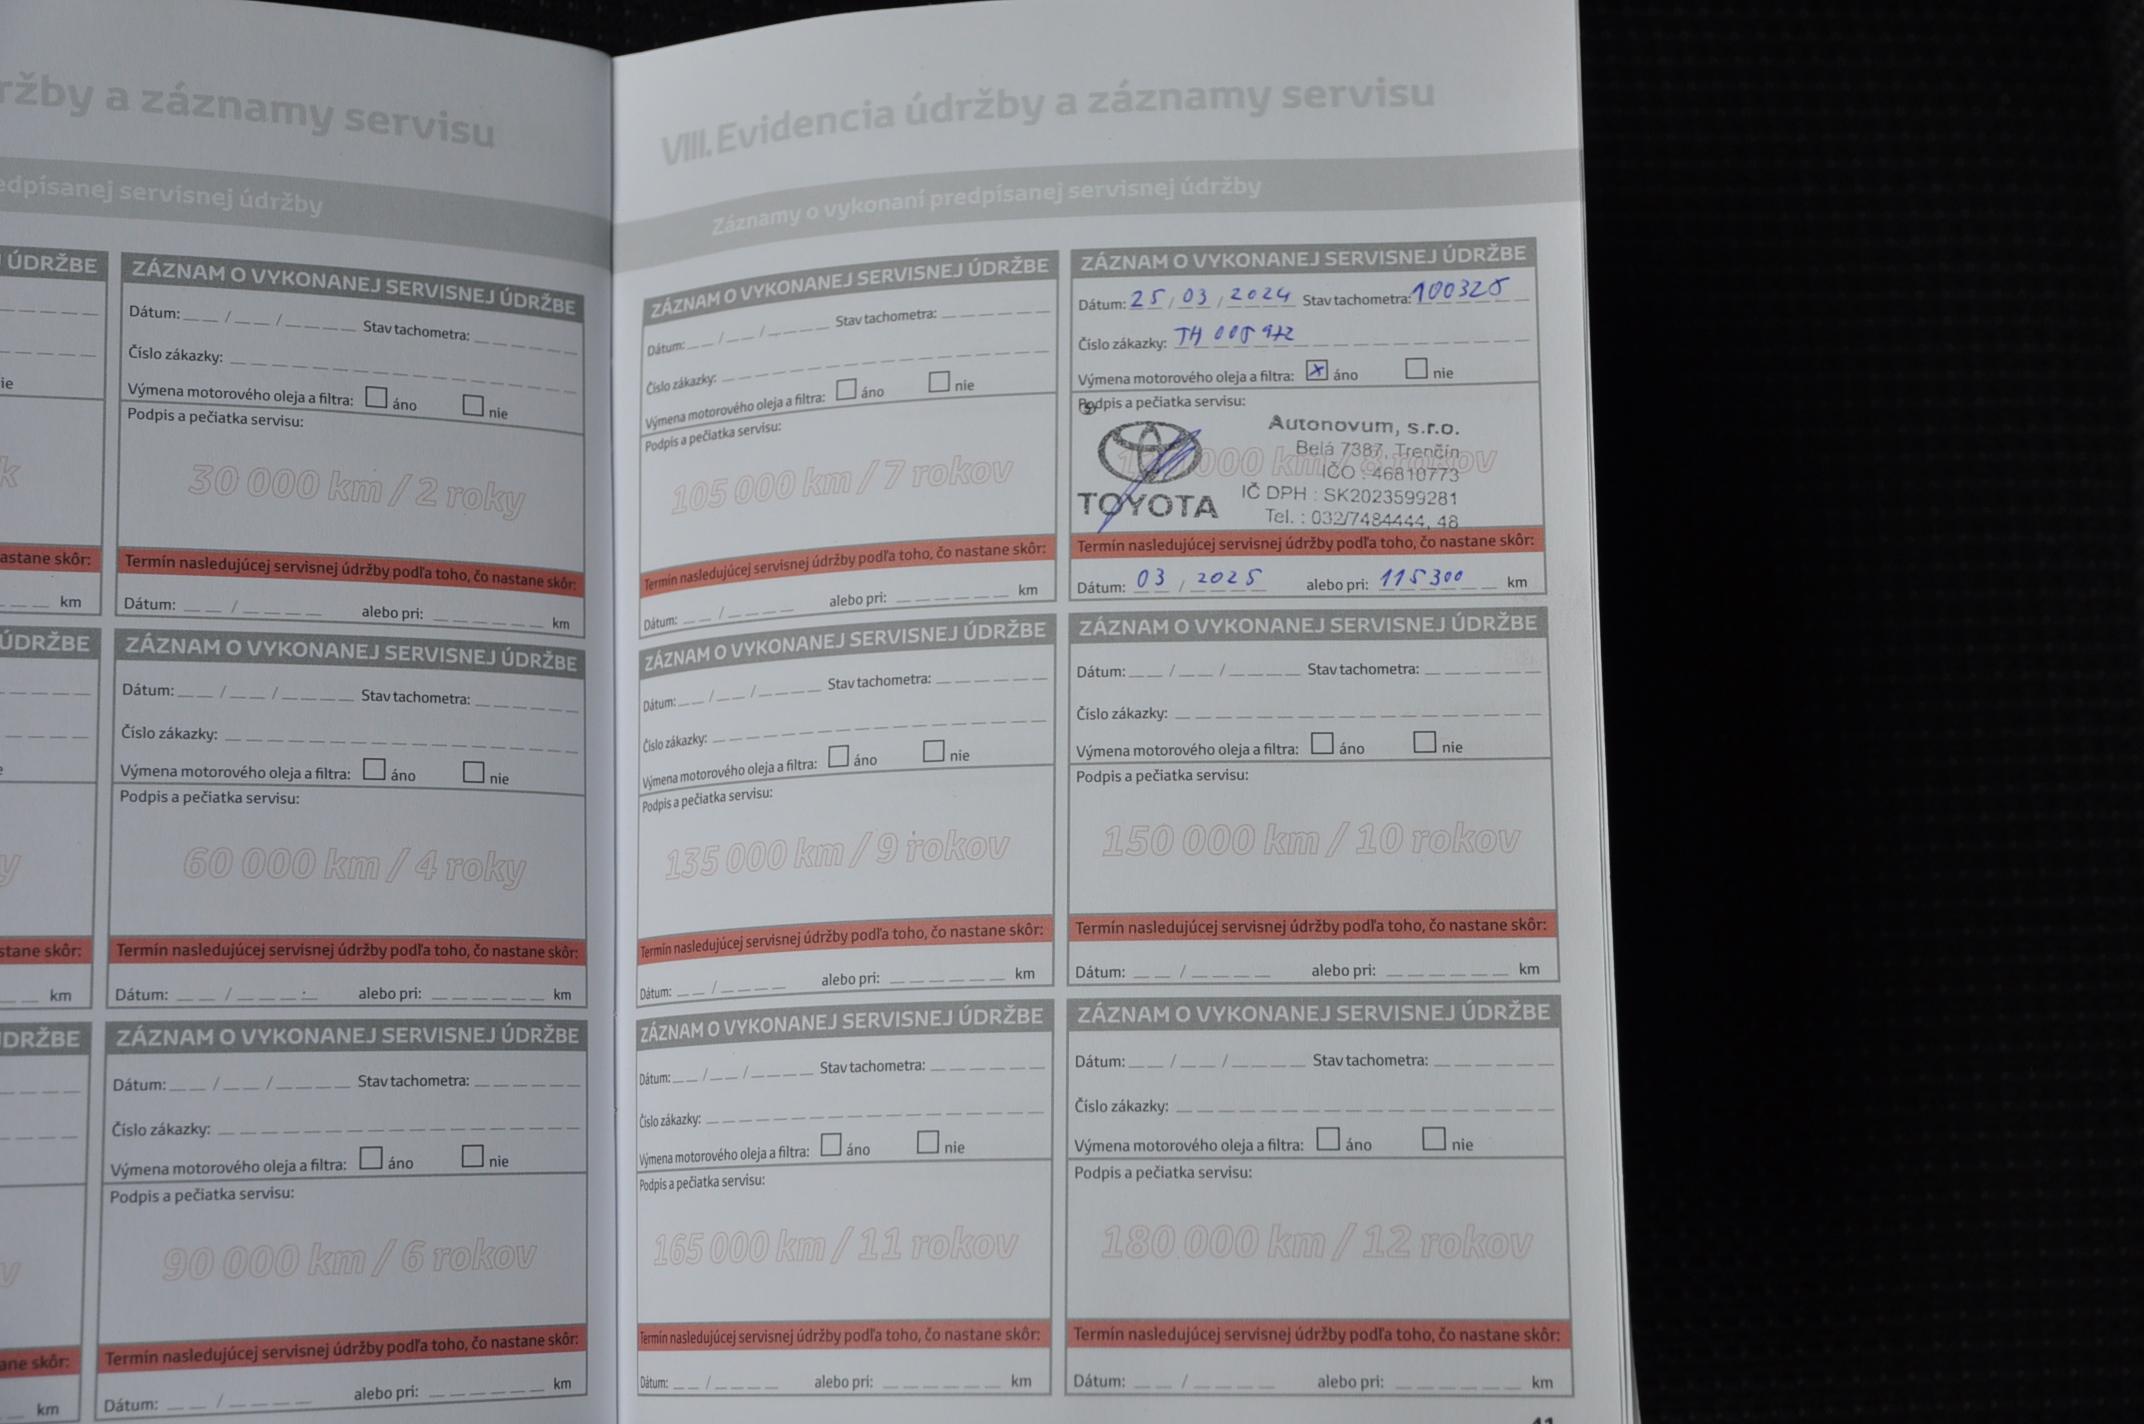 ržby a záznamy servisu
edpísanej servisnej údržby
ÚDRŽBE
ie
k
astane skôr:
km
ÚDRŽBE
y
stane skôr:
km
DRŽBE
v
ane skôr:
km
ZÁZNAM O VYKONANEJ SERVISNEJ ÚDRŽBE
Dátum: / / Stav tachometra:
Číslo zákazky:
Výmena motorového oleja a filtra: áno nie
Podpis a pečiatka servisu:
30 000 km / 2 roky
Termín nasledujúcej servisnej údržby podľa toho, čo nastane skôr:
Dátum: / alebo pri: km
ZÁZNAM O VYKONANEJ SERVISNEJ ÚDRŽBE
Dátum: / / Stav tachometra:
Číslo zákazky:
Výmena motorového oleja a filtra: áno nie
Podpis a pečiatka servisu:
60 000 km / 4 roky
Termín nasledujúcej servisnej údržby podľa toho, čo nastane skôr:
Dátum: / alebo pri: km
ZÁZNAM O VYKONANEJ SERVISNEJ ÚDRŽBE
Dátum: / / Stav tachometra:
Číslo zákazky:
Výmena motorového oleja a filtra: áno nie
Podpis a pečiatka servisu:
90 000 km / 6 rokov
Termín nasledujúcej servisnej údržby podľa toho, čo nastane skôr:
Dátum: / alebo pri: km
VIII. Evidencia údržby a záznamy servisu
Záznamy o vykonaní predpísanej servisnej údržby
ZÁZNAM O VYKONANEJ SERVISNEJ ÚDRŽBE
Dátum: / / Stav tachometra:
Číslo zákazky:
Výmena motorového oleja a filtra: áno nie
Podpis a pečiatka servisu:
105 000 km / 7 rokov
Termín nasledujúcej servisnej údržby podľa toho, čo nastane skôr:
Dátum: / alebo pri: km
ZÁZNAM O VYKONANEJ SERVISNEJ ÚDRŽBE
Dátum: 25 / 03 / 2024 Stav tachometra: 100325
Číslo zákazky: TH 005972
Výmena motorového oleja a filtra: x áno nie
Podpis a pečiatka servisu:
Autonovum, s.r.o.
Belá 7387, Trenčín
IČO : 46810773
IČ DPH : SK2023599281
TOYOTA
Tel. : 032/7484444, 48
Termín nasledujúcej servisnej údržby podľa toho, čo nastane skôr:
Dátum: 03 / 2025 alebo pri: 115300 km
ZÁZNAM O VYKONANEJ SERVISNEJ ÚDRŽBE
Dátum: / / Stav tachometra:
Číslo zákazky:
Výmena motorového oleja a filtra: áno nie
Podpis a pečiatka servisu:
135 000 km / 9 rokov
Termín nasledujúcej servisnej údržby podľa toho, čo nastane skôr:
Dátum: / alebo pri: km
ZÁZNAM O VYKONANEJ SERVISNEJ ÚDRŽBE
Dátum: / / Stav tachometra:
Číslo zákazky:
Výmena motorového oleja a filtra: áno nie
Podpis a pečiatka servisu:
150 000 km / 10 rokov
Termín nasledujúcej servisnej údržby podľa toho, čo nastane skôr:
Dátum: / alebo pri: km
ZÁZNAM O VYKONANEJ SERVISNEJ ÚDRŽBE
Dátum: / / Stav tachometra:
Číslo zákazky:
Výmena motorového oleja a filtra: áno nie
Podpis a pečiatka servisu:
165 000 km / 11 rokov
Termín nasledujúcej servisnej údržby podľa toho, čo nastane skôr:
Dátum: / alebo pri: km
ZÁZNAM O VYKONANEJ SERVISNEJ ÚDRŽBE
Dátum: / / Stav tachometra:
Číslo zákazky:
Výmena motorového oleja a filtra: áno nie
Podpis a pečiatka servisu:
180 000 km / 12 rokov
Termín nasledujúcej servisnej údržby podľa toho, čo nastane skôr:
Dátum: / alebo pri: km